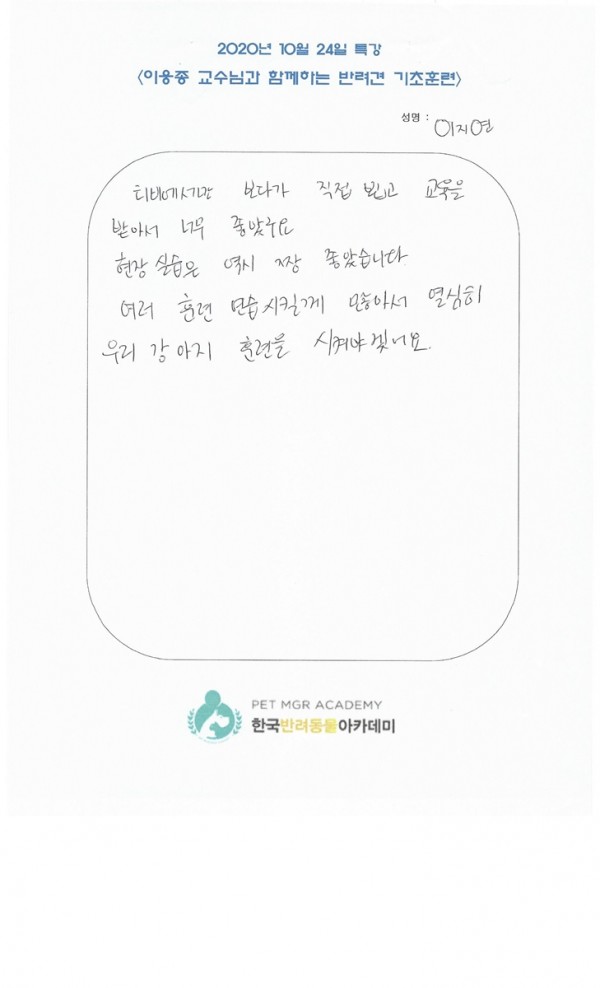 2020년 10월 24일 특강
<이웅종 교수님과 함께하는 반려견 기초훈련>
성명 : 이지연
티비에서만 보다가 직접 뵙고 교육을
받아서 너무 좋았구요
현장 실습은 역시 짱 좋았습니다
여러 훈련 연습시킬게 많아서 열심히
우리 강아지 훈련을 시켜야겠네요.
PET MGR ACADEMY
한국반려동물아카데미